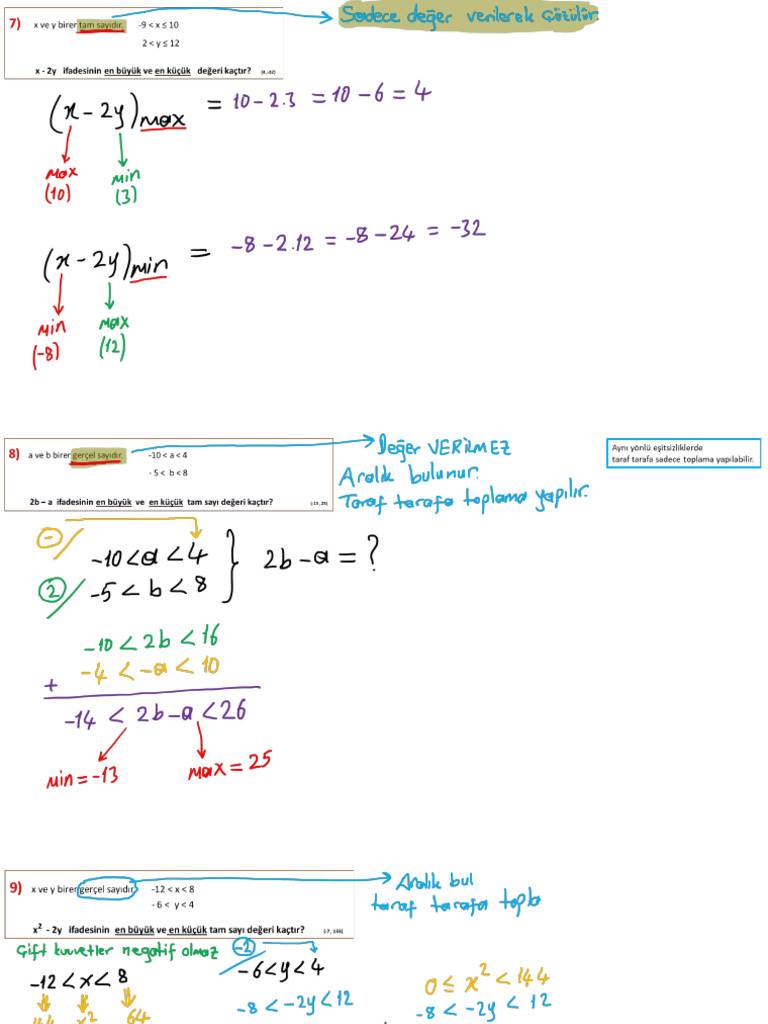 7) x ve y birer tam sayıdır. -9 < x ≤ 10
2 < y ≤ 12
x - 2y ifadesinin en büyük ve en küçük değeri kaçtır? (4,-32)
Sadece değer verilerek çözülür.
(x - 2y)max = 10 - 2.3 = 10 - 6 = 4
max min
(10) (3)
(x - 2y)min = -8 - 2.12 = -8 - 24 = -32
min max
(-8) (12)
8) a ve b birer gerçel sayıdır. -10 < a < 4
- 5 < b < 8
2b – a ifadesinin en büyük ve en küçük tam sayı değeri kaçtır?
Değer VERİLMEZ
Aralık bulunur.
Taraf tarafa toplama yapılır.
Aynı yönlü eşitsizliklerde
taraf tarafa sadece toplama yapılabilir.
-/ -10 < a < 4
2/ -5 < b < 8 } 2b - a = ?
-10 < 2b < 16
+ -4 < -a < 10
-14 < 2b - a < 26
min = -13 max = 25
9) x ve y birer gerçel sayıdır. -12 < x < 8
- 6 < y < 4
x² - 2y ifadesinin en büyük ve en küçük tam sayı değeri kaçtır?
Aralık bul
taraf tarafa topla
Çift kuvvetler negatif olmaz
-12 < x < 8
144 x² 64
-2/ -6 < y < 4
-8 < -2y < 12
0 ≤ x² < 144
-8 < -2y < 12